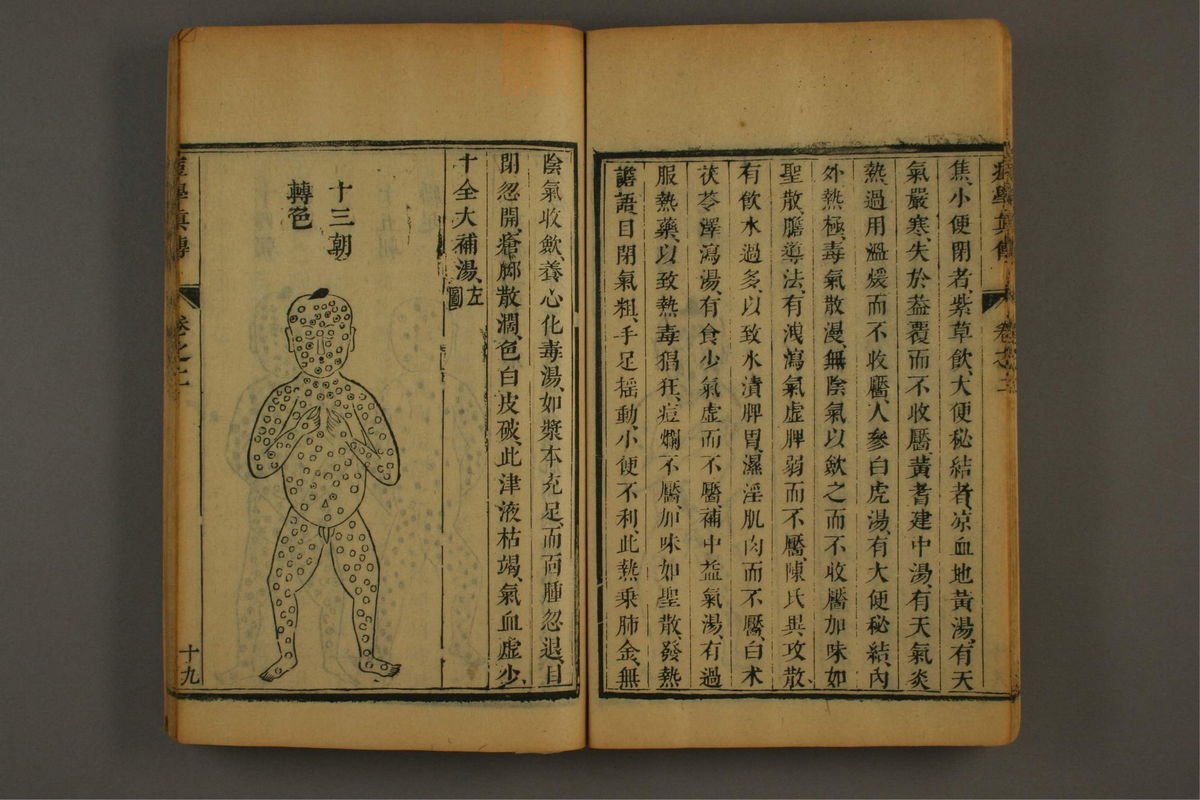 焦、小便閉者、紫草飲、大便秘結者、凉血地黃湯、有天
氣嚴寒、失於葢覆而不收靨、黃耆建中湯、有天氣炎
熱、過用溫煖而不收靨、人參白虎湯、有大便秘結、內
外熱極、毒氣散漫、無陰氣以歛之而不收靨、加味如
聖散、膽導法、有洩瀉氣虛脾弱而不靨、陳氏異攻散、
有飮水過多、以致水漬脾胃、濕淫肌肉而不靨、白术
茯苓澤瀉湯、有食少氣虛而不靨、補中益氣湯、有過
服熱藥、以致熱毒猖狂、痘爛不靨、加味如聖散、發熱
譫語、目閉氣粗、手足揺動、小便不利、此熱乗肺金、無
陰氣收歛、養心化毒湯、如漿本充足、而面腫忽退、目
閉忽開、瘡脚散濶、色白皮破、此津液枯竭、氣血虛少、
十全大補湯、左圖
十三朝
轉色
痘學眞傳
卷之二
十九